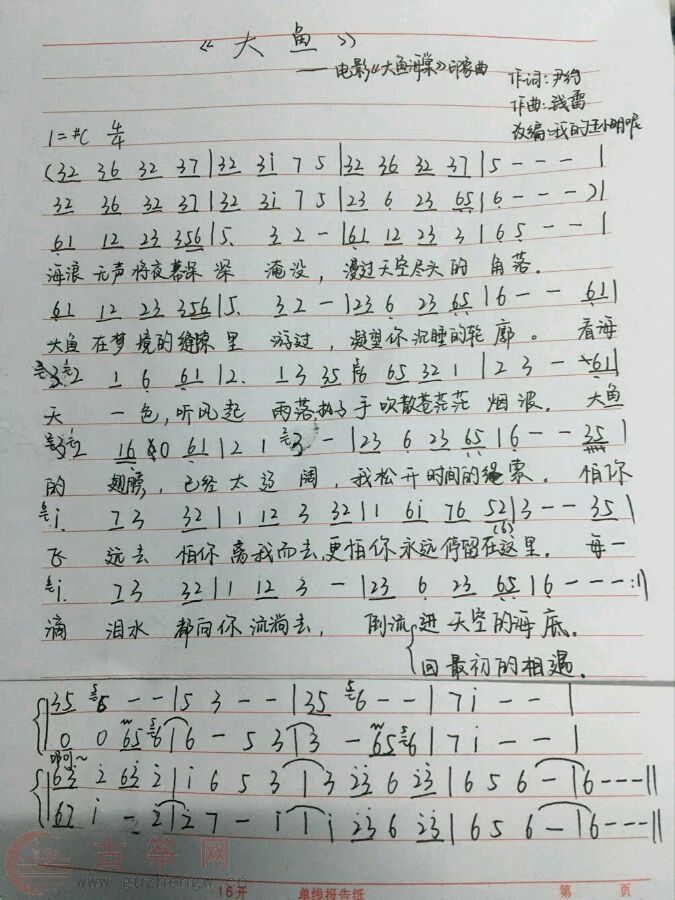 《大鱼》
——电影《大鱼海棠》印象曲
作词:尹约
作曲:钱雷
改编:我的王小明呢
1=#C 4/4
(32 36 32 37|32 3i 7 5|32 36 32 37|5 - - - |
32 36 32 37|32 3i 7 5|23 6 23 65|6 - - - )|
61 12 23 356|5. 3 2 -|61 12 23 3|6 5 - - |
海浪无声将夜幕深深 淹没,漫过天空尽头的 角落。
61 12 23 356|5. 3 2 -|23 6 23 65|6 - - 61|
大鱼在梦境的缝隙里 游过,凝望你沉睡的轮廓。 看海
3 2 1 6 61|2. 1 3 35 6 65 32 1|2 3 - 61|
天 一色,听风起 雨落执子手吹散苍茫茫 烟波。 大鱼
3 2 16 0 61|2 1 3 -|23 6 23 65|6 - - 35|
的 翅膀,已经太辽 阔,我松开时间的绳索。 怕你
i. 73 32|1 12 3 32|1 6i 76 52|3 - - 35|
(6)
飞 远去 怕你离我而去,更怕你永远停留在这里。 每一
i. 73 32|1 12 3 -|23 6 23 65|6 - - - :||
滴 泪水 都向你流淌去, 倒流进天空的海底。
回最初的相遇。
35 6 - - |5 3 - - |35 6 - - |7 i - - |
0 0 65 6|6 - 5 3|3 - 65 6|7 i - - |
63 2 63 2|1 6 5 3|3 23 6 23|6 5 6 -|6 - - -||
67 i - 2|2 7 - i|i 23 6 23|6 5 6 -|6 - - -||
古筝网
www.guzhengw.cn
16开 单线报告纸 第 页